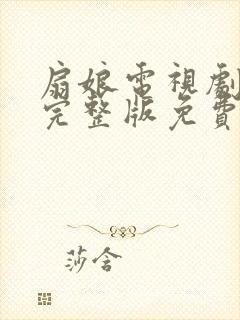 扇娘電視劇
完整版免費
莎含